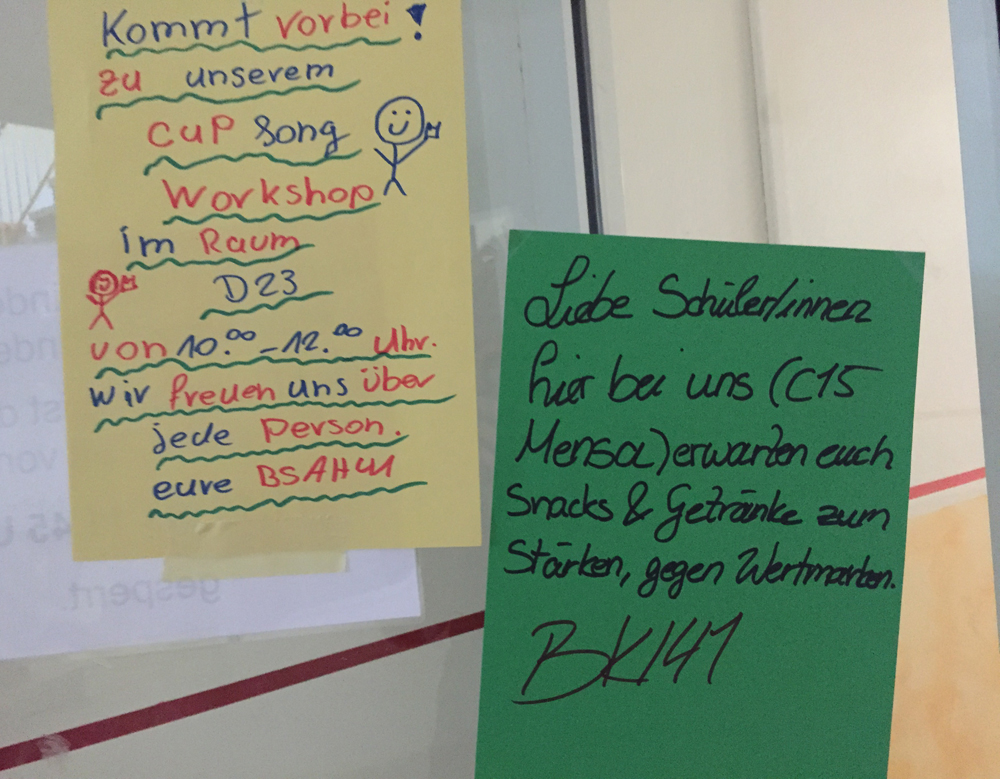 Kommt vorbei!
zu unserem
cup song
Workshop
im Raum
D23
von 10.⁰⁰-12.⁰⁰ Uhr.
Wir freuen uns über
jede Person.
eure
Liebe Schüler/innen
hier bei uns (C15
Mensa) erwarten euch
Snacks & Getränke zum
Stärken, gegen Wertmarken.
BKI41
gesperrt.